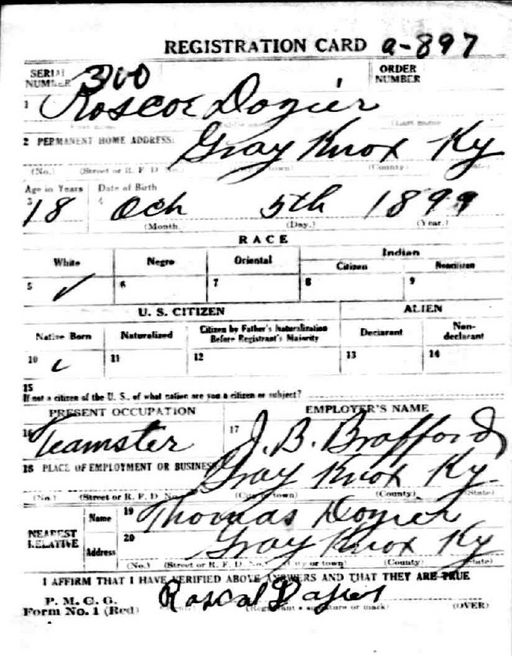 REGISTRATION CARD a-897
SERIAL NUMBER 300 ORDER NUMBER
1 Roscoe Dozier
2 PERMANENT HOME ADDRESS: Gray Knox Ky
(No.) (Street or R. F. D. No.) (City or town) (County) (State)
Age in Years Date of Birth
3 18 4 Och 5th 1899
(Month. (Day.) (Year.)
RACE
White Negro Oriental Indian
Citizen Noncitizen
5 ✓ 6 7 8 9
U. S. CITIZEN ALIEN
Native Born Naturalized Citizen by Father's Naturalization Before Registrant's Majority Declarant Non-declarant
10 ✓ 11 12 13 14
15
If not a citizen of the U. S., of what nation are you a citizen or subject?
PRESENT OCCUPATION EMPLOYER'S NAME
16 Teamster 17 J. B. Brafford
18 PLACE OF EMPLOYMENT OR BUSINESS: Gray Knox Ky.
(No.) (Street or R. F. D. No.) (City or town) (County) (State)
NEAREST RELATIVE Name 19 Thomas Dozier
Address 20 Gray Knox Ky
(No.) (Street or R. F. D. No.) (City or town) (County) (State)
I AFFIRM THAT I HAVE VERIFIED ABOVE ANSWERS AND THAT THEY ARE TRUE
P. M. G. G.
Form No. 1 (Red) Roscal Dozier (Registrant's signature or mark) (OVER)